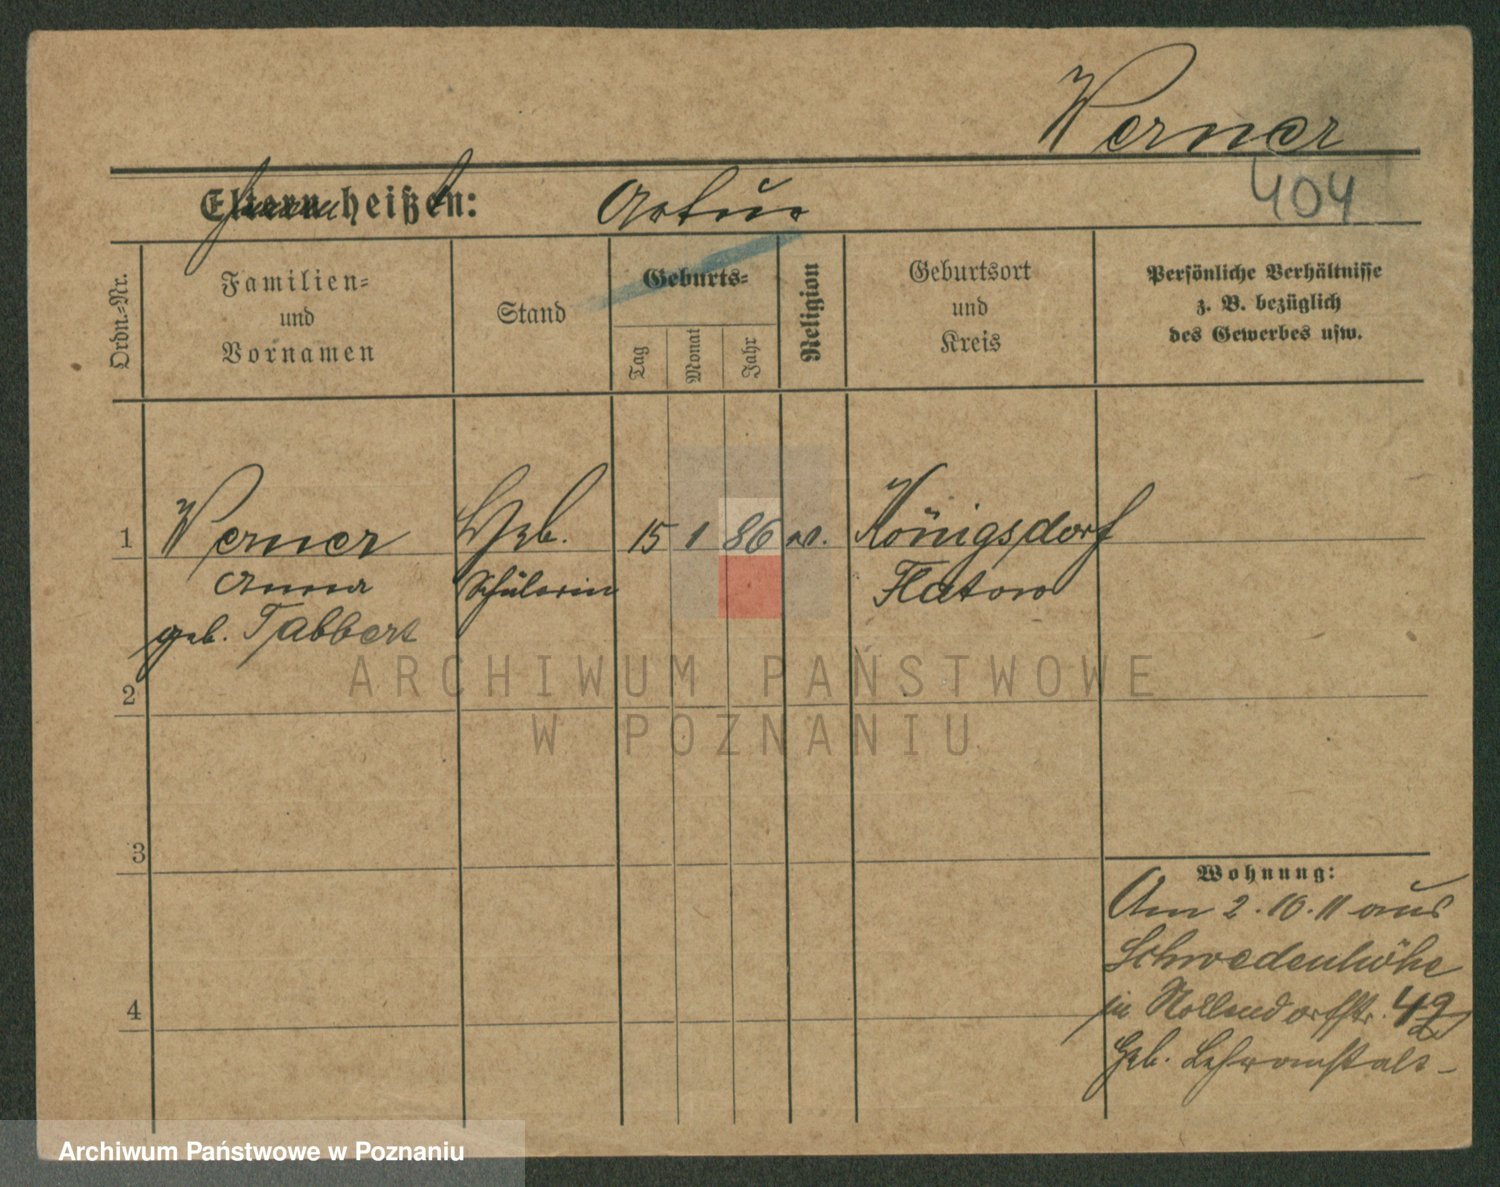 Werner
404
Eltern heißen: Artur
Ordn.-Nr.
Familien-
und
Vornamen
Stand
Geburts-
Tag
Monat
Jahr
Religion
Geburtsort
und
Kreis
Persönliche Verhältnisse
z. B. bezüglich
des Gewerbes usw.
1 Werner Heb. 15 1 86 ev. Königsdorf
Anna Schülerin Flatow
geb. Tabbert
2
3
4
Wohnung:
Am 2.10.11 aus
Schwedenhöhe
in Nollendorfstr. 49
Heb. Lehranstalt-
ARCHIWUM PAŃSTWOWE
W POZNANIU
Archiwum Państwowe w Poznaniu